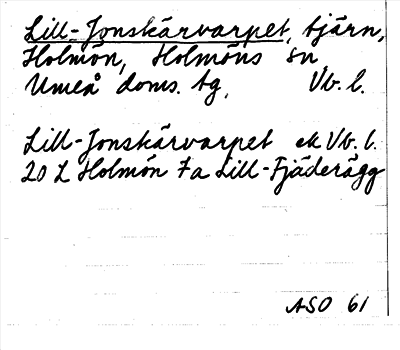 Lill-Jonskärvarpet, tjärn,
Holmön, Holmöns sn
Umeå doms. tg, Vb. l.
Lill-Jonskärvarpet ek Vb. l.
20 L Holmön 7a Lill-Fjäderägg
ASO 61